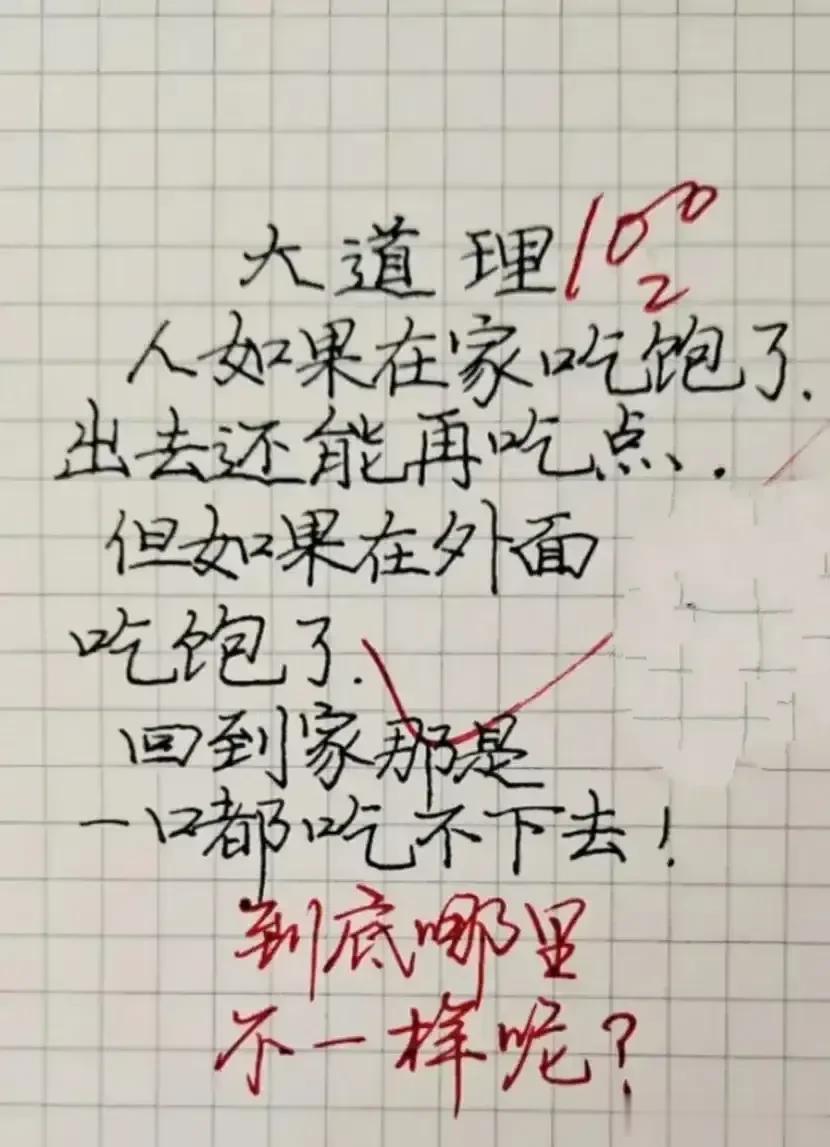 大道理 100
2
人如果在家吃饱了.
出去还能再吃点.
但如果在外面
吃饱了.
回到家那是
一口都吃不下去!
到底哪里
不一样呢?